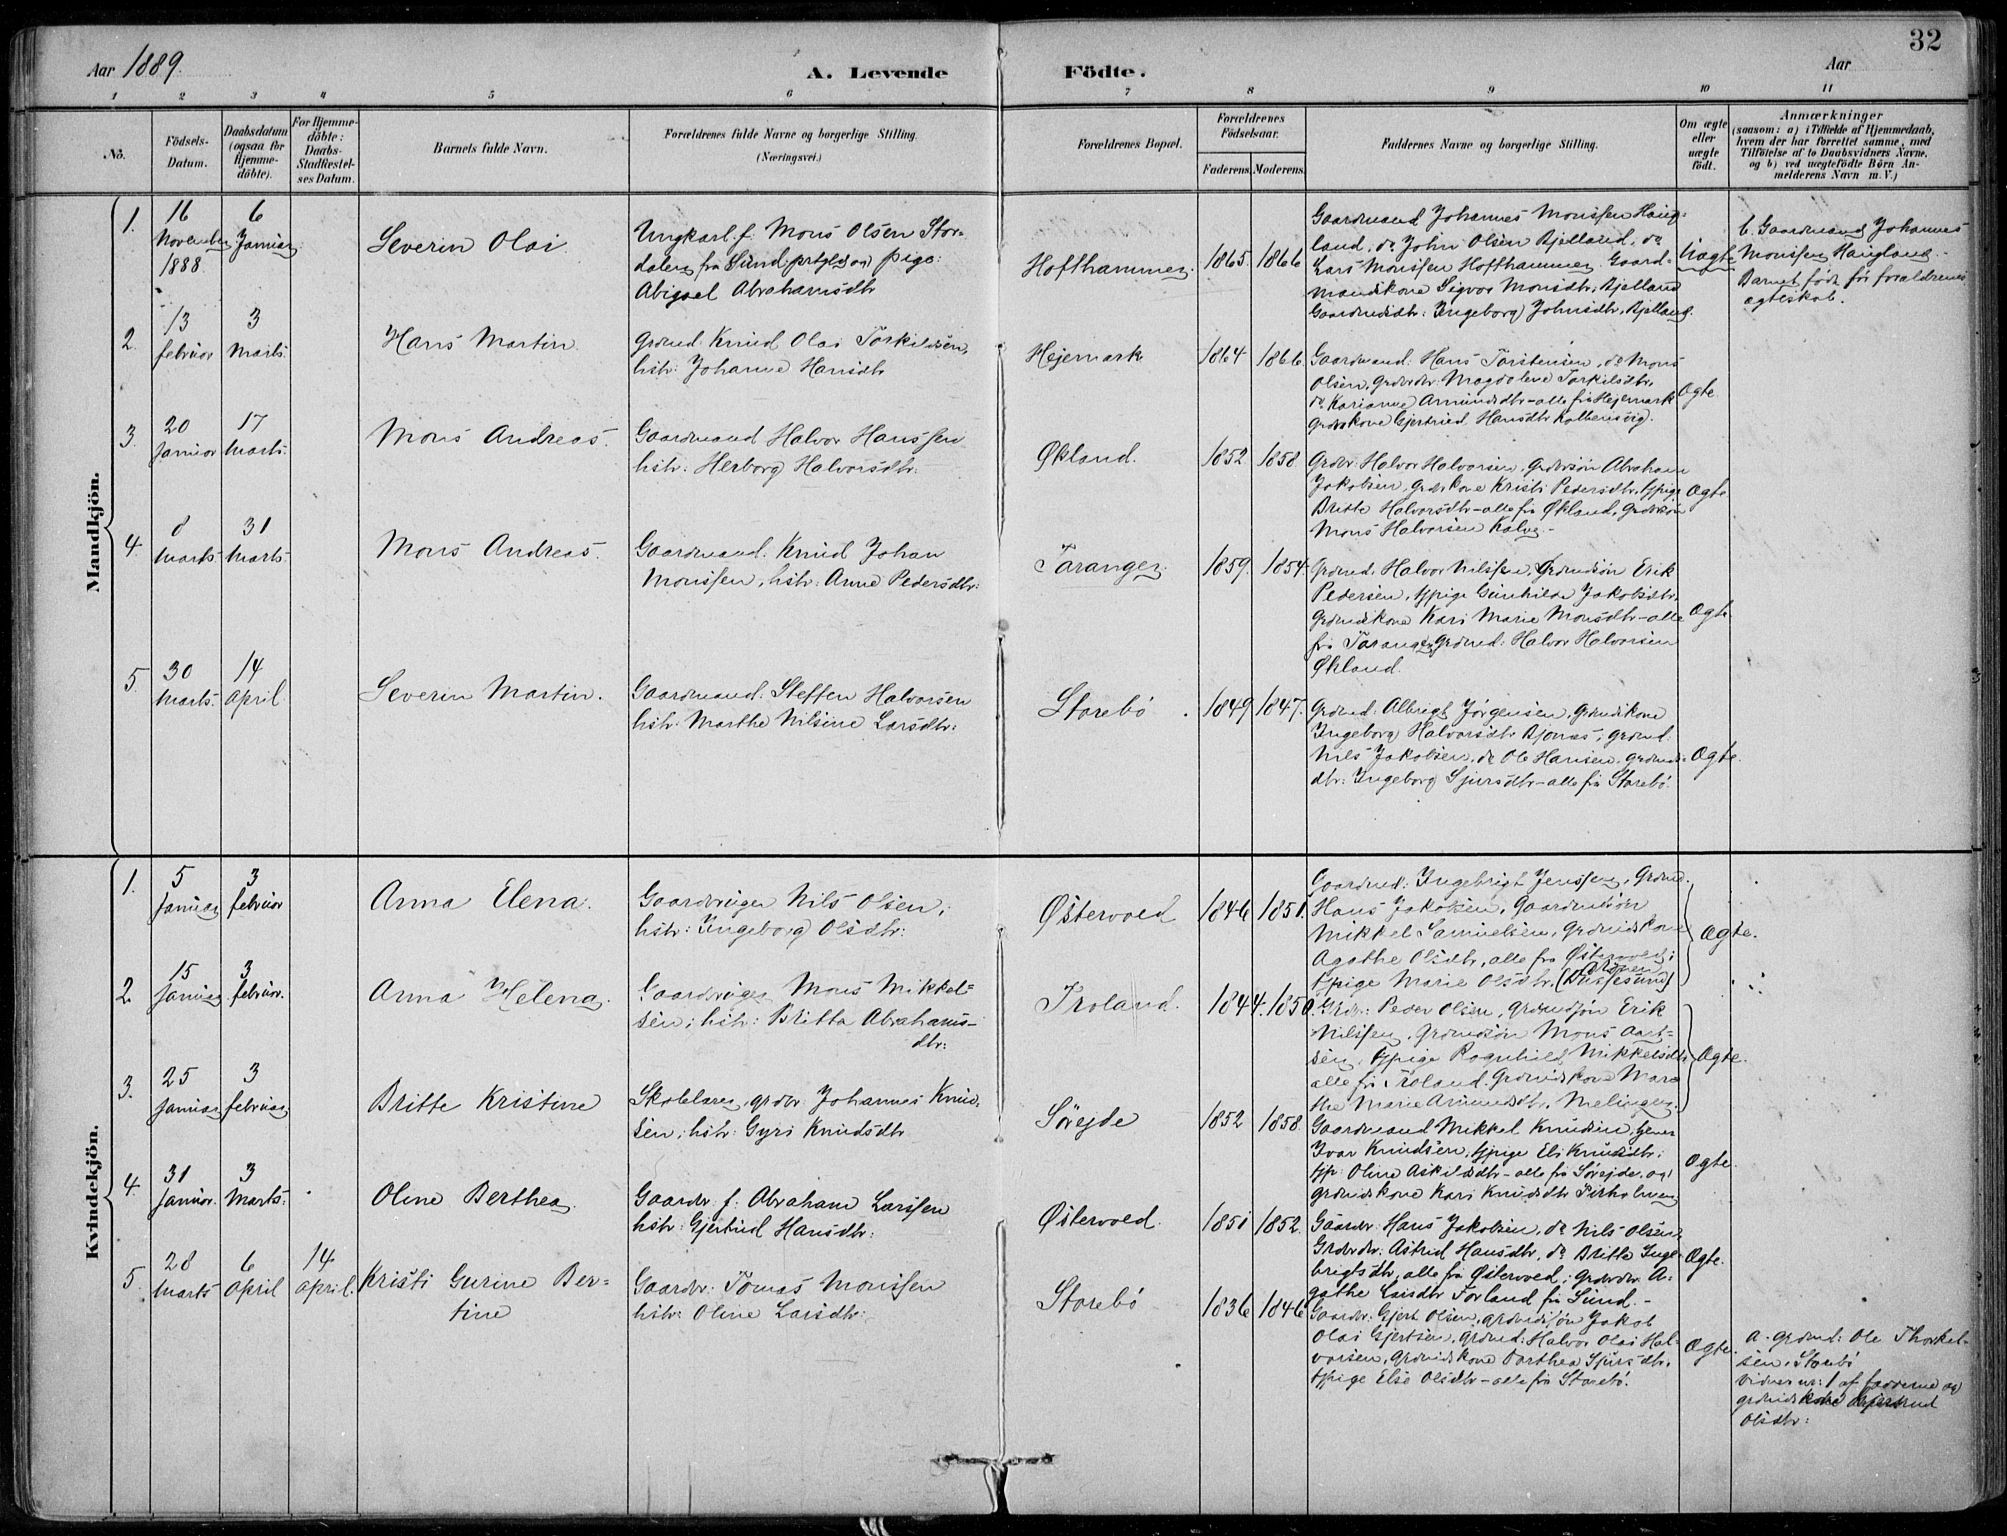 32
Aar 1889.
A. Levende Födte.
Aar
1 2 3 4 5 6 7 8 9 10 11
No.
Födsels-
Datum.
Daabsdatum
(ogsaa for
Hjemme-
döbte).
For Hjemme-
döbte:
Daabs-
Stadfæstel-
ses Datum.
Barnets fulde Navn.
Forældrenes fulde Navne og borgerlige Stilling.
(Næringsvei.)
Forældrenes Bopæl.
Forældrenes
Födselsaar.
Faderens. Moderens.
Faddernes Navne og borgerlige Stilling.
Om ægte
eller
uægte
födt.
Anmærkninger
(saasom: a) i Tilfælde af Hjemmedaab,
hvem der har forrettet samme, med
Tilföielse af to Daabsvidners Navne,
og b) ved uægtefödte Börn An-
melderens Navn m. V.)
Mandkjön.
1.
16
November
1888
6
Januar
Severin Olai
Ungkarl. f. Mons Olsen Stor-
dalen fra Sund. og pige:
Abigael Abrahamsdtr
Hofthammer.
1865. 1866
Gaardmand Johannes Monssen Haug-
land, do John Olsen Bjelland, do
Lars Monssen Hofthammer. Gaard-
mandskone Sigvor Monsdtr. Bjelland
Gaardmdsdtr: Ingeborg Johnsdtr. Bjelland.
Uægte
b. Gaardmand Johannes
Monssen Haugland.
Barnet født før forældrenes
ægteskab.
2.
13
februar
3
Marts.
Hans Martin
Grdmd. Knud Olai Torkildsen,
hstr: Johanne Hansdtr
Hejemark
1864 1866
Gaardmand: Hans Torstensen, do Mons
Olsen, Grdbrdtr: Magdolene Torkilsdtr,
do Karianne Amundsdtr - alle fra Hejemark
Grdbrkone Gjertrud Hansdtr Kolbensvig.
Ægte
3.
20
Januar
17
Marts.
Mons Andreas.
Gaardmand Halvor Hanssen
hstr: Herborg Halvorsdtr:
Økland.
1852 1858
Grdbr: Halvor Halvorsen, Grdbrsøn Abraham
Jakobsen, Grdbrkone Kristi Pedersdtr, tjpige
Britte Halvorsdtr - alle fra Økland, Grdbrsøn
Mons Halvorsen Kalve -
Ægte
4.
8
Marts
31
Marts
Mons Andreas.
Gaardmand. Knud Johan
Monssen, hstr: Anne Pedersdtr:
Taranger.
1859. 1854.
Grdmd. Halvor Nilssen, Grdmdsøn Erik
Pedersen, tjpige Gunhilde Jakobsdtr,
Grdmdskone Kari Marie Monsdtr - alle
fra Taranger, Grdmd: Halvor Halvorsen
Økland.
Ægte
5.
30
Marts.
14
April
Severin Martin.
Gaardmand: Steffen Halvorsen
hstr. Marthe Nilsine Larsdtr:
Storebø.
1849 1847.
Grdmd: Albrigt Jørgensen, Grdmdskone
Ingeborg Halvorsdtr Bjonæs, Grdmd.
Nils Jakobsen, do Ole Hansen, Grdmds-
dtr: Ingeborg Sjursdtr - alle fra Storebø.
Ægte.
Kvindekjön.
1.
5
Januar
3
februar
Anna Elena.
Gaardbruger Nils Olsen;
hstr: Ingeborg Olsdtr:
Østervold
1846 1851.
Gaardmd: Ingebrigt Jenssen, Grdmd.
Hans Jakobsen, Gaardmdsøn
Mikkel Samuelsen, Grdmdskone
Agathe Olsdtr, alle fra Østervold;
tjpige Marie Olsdtr.
Ægte.
2.
15
Januar
3
februar.
Anna Helena.
Gaardbruger Mons Mikkel-
sen; hstr: Britta Abrahams-
dtr:
Troland.
1844. 1850.
Grdbr: Peder Olsen, Grdmdsøn Erik
Nilssen, Grdmdsøn Mons
sen, tjpige Ragnhild Mikkelsdtr
alle fra Troland. Grdmdskone Mar-
the Marie Amundsdtr. Melingen.
Ægte.
3.
25
Januar
3
februar
Britte Kristine
Skolelærer, grdbr. Johannes Knud-
sen; hstr: Gyri Knudsdtr
Sørejde
1852 1858.
Gaardmand Mikkel Knudsen,
Ivar Knudsen, tjpige Eli Knudsdtr:
tjp: Oline Askildsdtr - alle fra Sørejde, og
grdmdskone Kari Knudsdtr
Ægte.
4.
31
Januar.
3
Marts:
Oline Berthea.
Gaardbr. f. Abraham Larssen
hstr: Gjertrud Hansdtr:
Østervold.
1851 1852.
Gaardbr. Hans Jakobsen, do Nils Olsen
Grdbrdtr: Astrid Hansdtr, do Britte Inge-
brigtsdtr, alle fra Østervold; Grdbrdtr A-
gathe Larsdtr Forland fra Sund. -
Ægte.
5.
28
Marts
6
April
14
April.
Kristi Gurine Ber-
tine
Gaardbr: Tomas Monssen
hstr: Oline Larsdtr:
Storebø
1836 1846
Gaardbr: Gjert Olsen, Grdmdsøn Jakob
Olai Gjertsen, Grdmd: Halvor Olai Hal-
vorsen, Grdmdskone Dorthea Sjursdtr,
tjpige Else Olsdtr - alle fra Storebø.
Ægte.
a. grdmd: Ole Thorkel-
sen, Storebø
vidner nr: 1 af fadderne og
grdmdskone Gjertrud
Olsdtr: